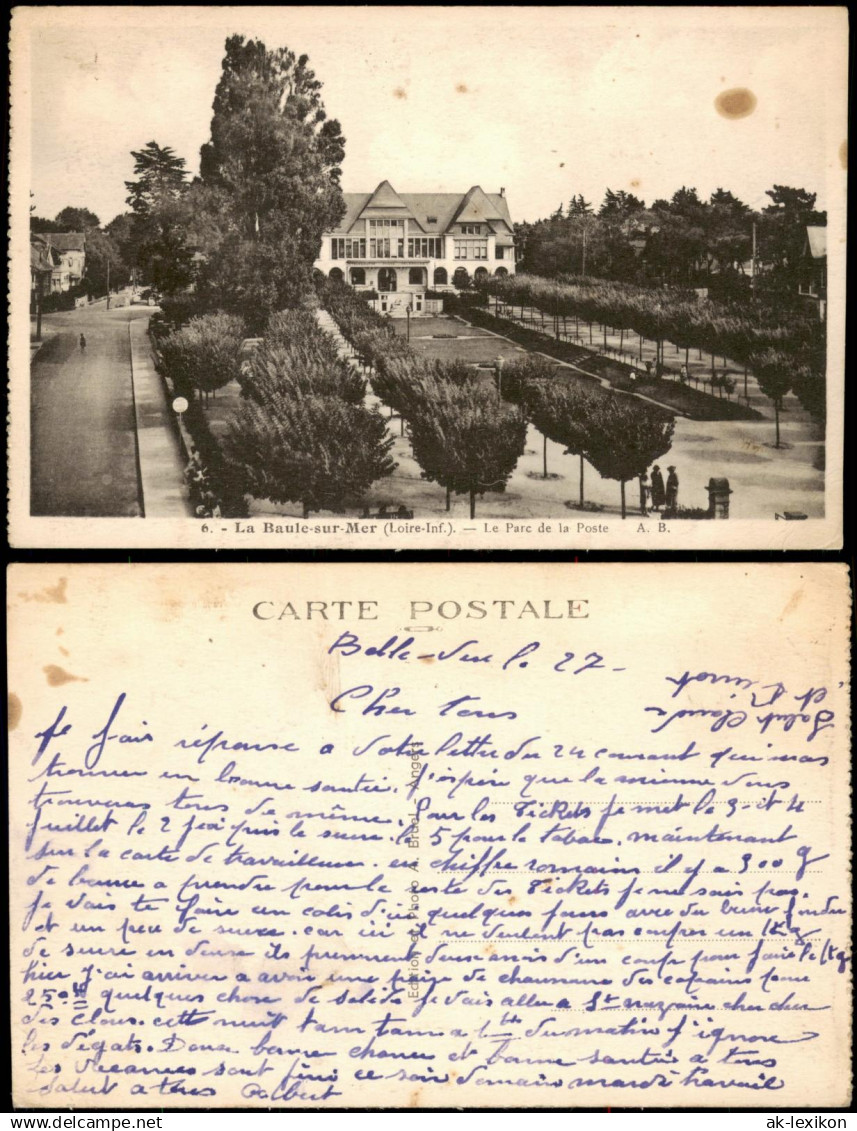 6. - La Baule-sur-Mer (Loire-Inf.). — Le Parc de la Poste A. B.
CARTE POSTALE
le 27 -
Cher tous
Salut
Je fais réponse a votre lettre du 24 courant qui m'as
trouver en bonne santée. J'espère que la mienne vous
trouveras tous de même. Pour les Tickets je met le 3 et 4
Juillet le 2 puis le sucre. le 5 pour le tabac. maintenant
sur la carte de travailleur. en chiffre romains il y a 300 g
de a prendre pour le reste des Tickets je ne sais pas.
Je vais te faire un colis d'ici quelques jours avec du fondu
et un peu de sucre. car ici il ne veulent pas couper un kg
de sucre en deux ils prennent deux mois d'un coup pour faire le kg
hier j'ai arriver a avoir une paire de chaussure des copains pour
250 quelques chose de solide je vais aller a St nazaire chercher
des clous. cette nuit tam tam a du matin j'ignore
les dégats. Donc bonne chance et bonne santée a tous
les vacances sont fini ce soir demain mardi travail
salut a tous Albert
Edition et Photo A. Bruel - Angers
www.delcampe.net
ak-lexikon